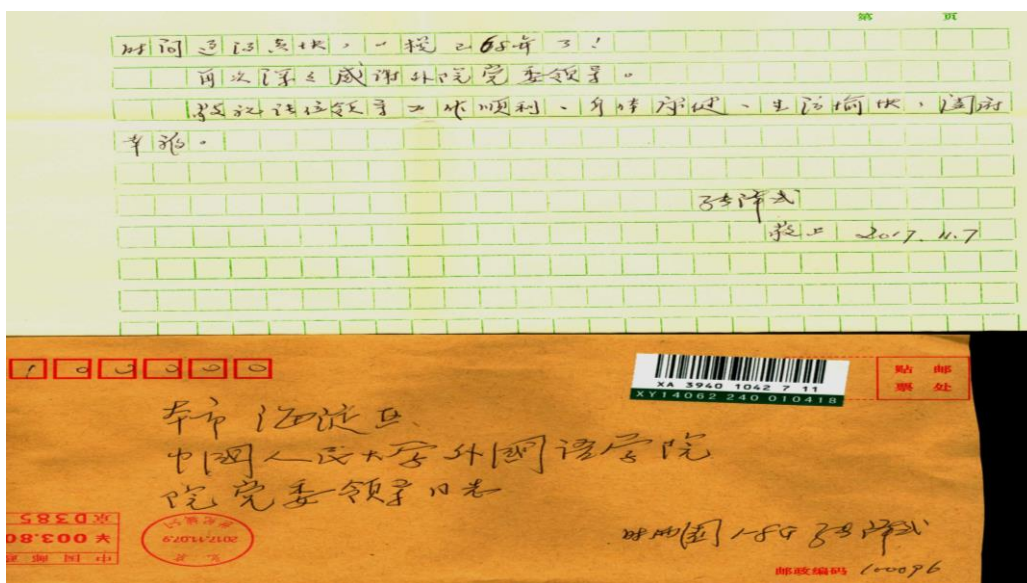 第 页
时间过得真快，一程已68年了！
再次深深感谢外院党委领导。
敬祝诸位领导工作顺利、身体康健、生活愉快，阖府
幸福。
敬上 2017.11.7
100000
XA 3940 1042 7 11
XY14062 240 010418
贴 邮
票 处
本市 海淀区
中国人民大学外國语学院
院党委领导同志
邮政编码 100096